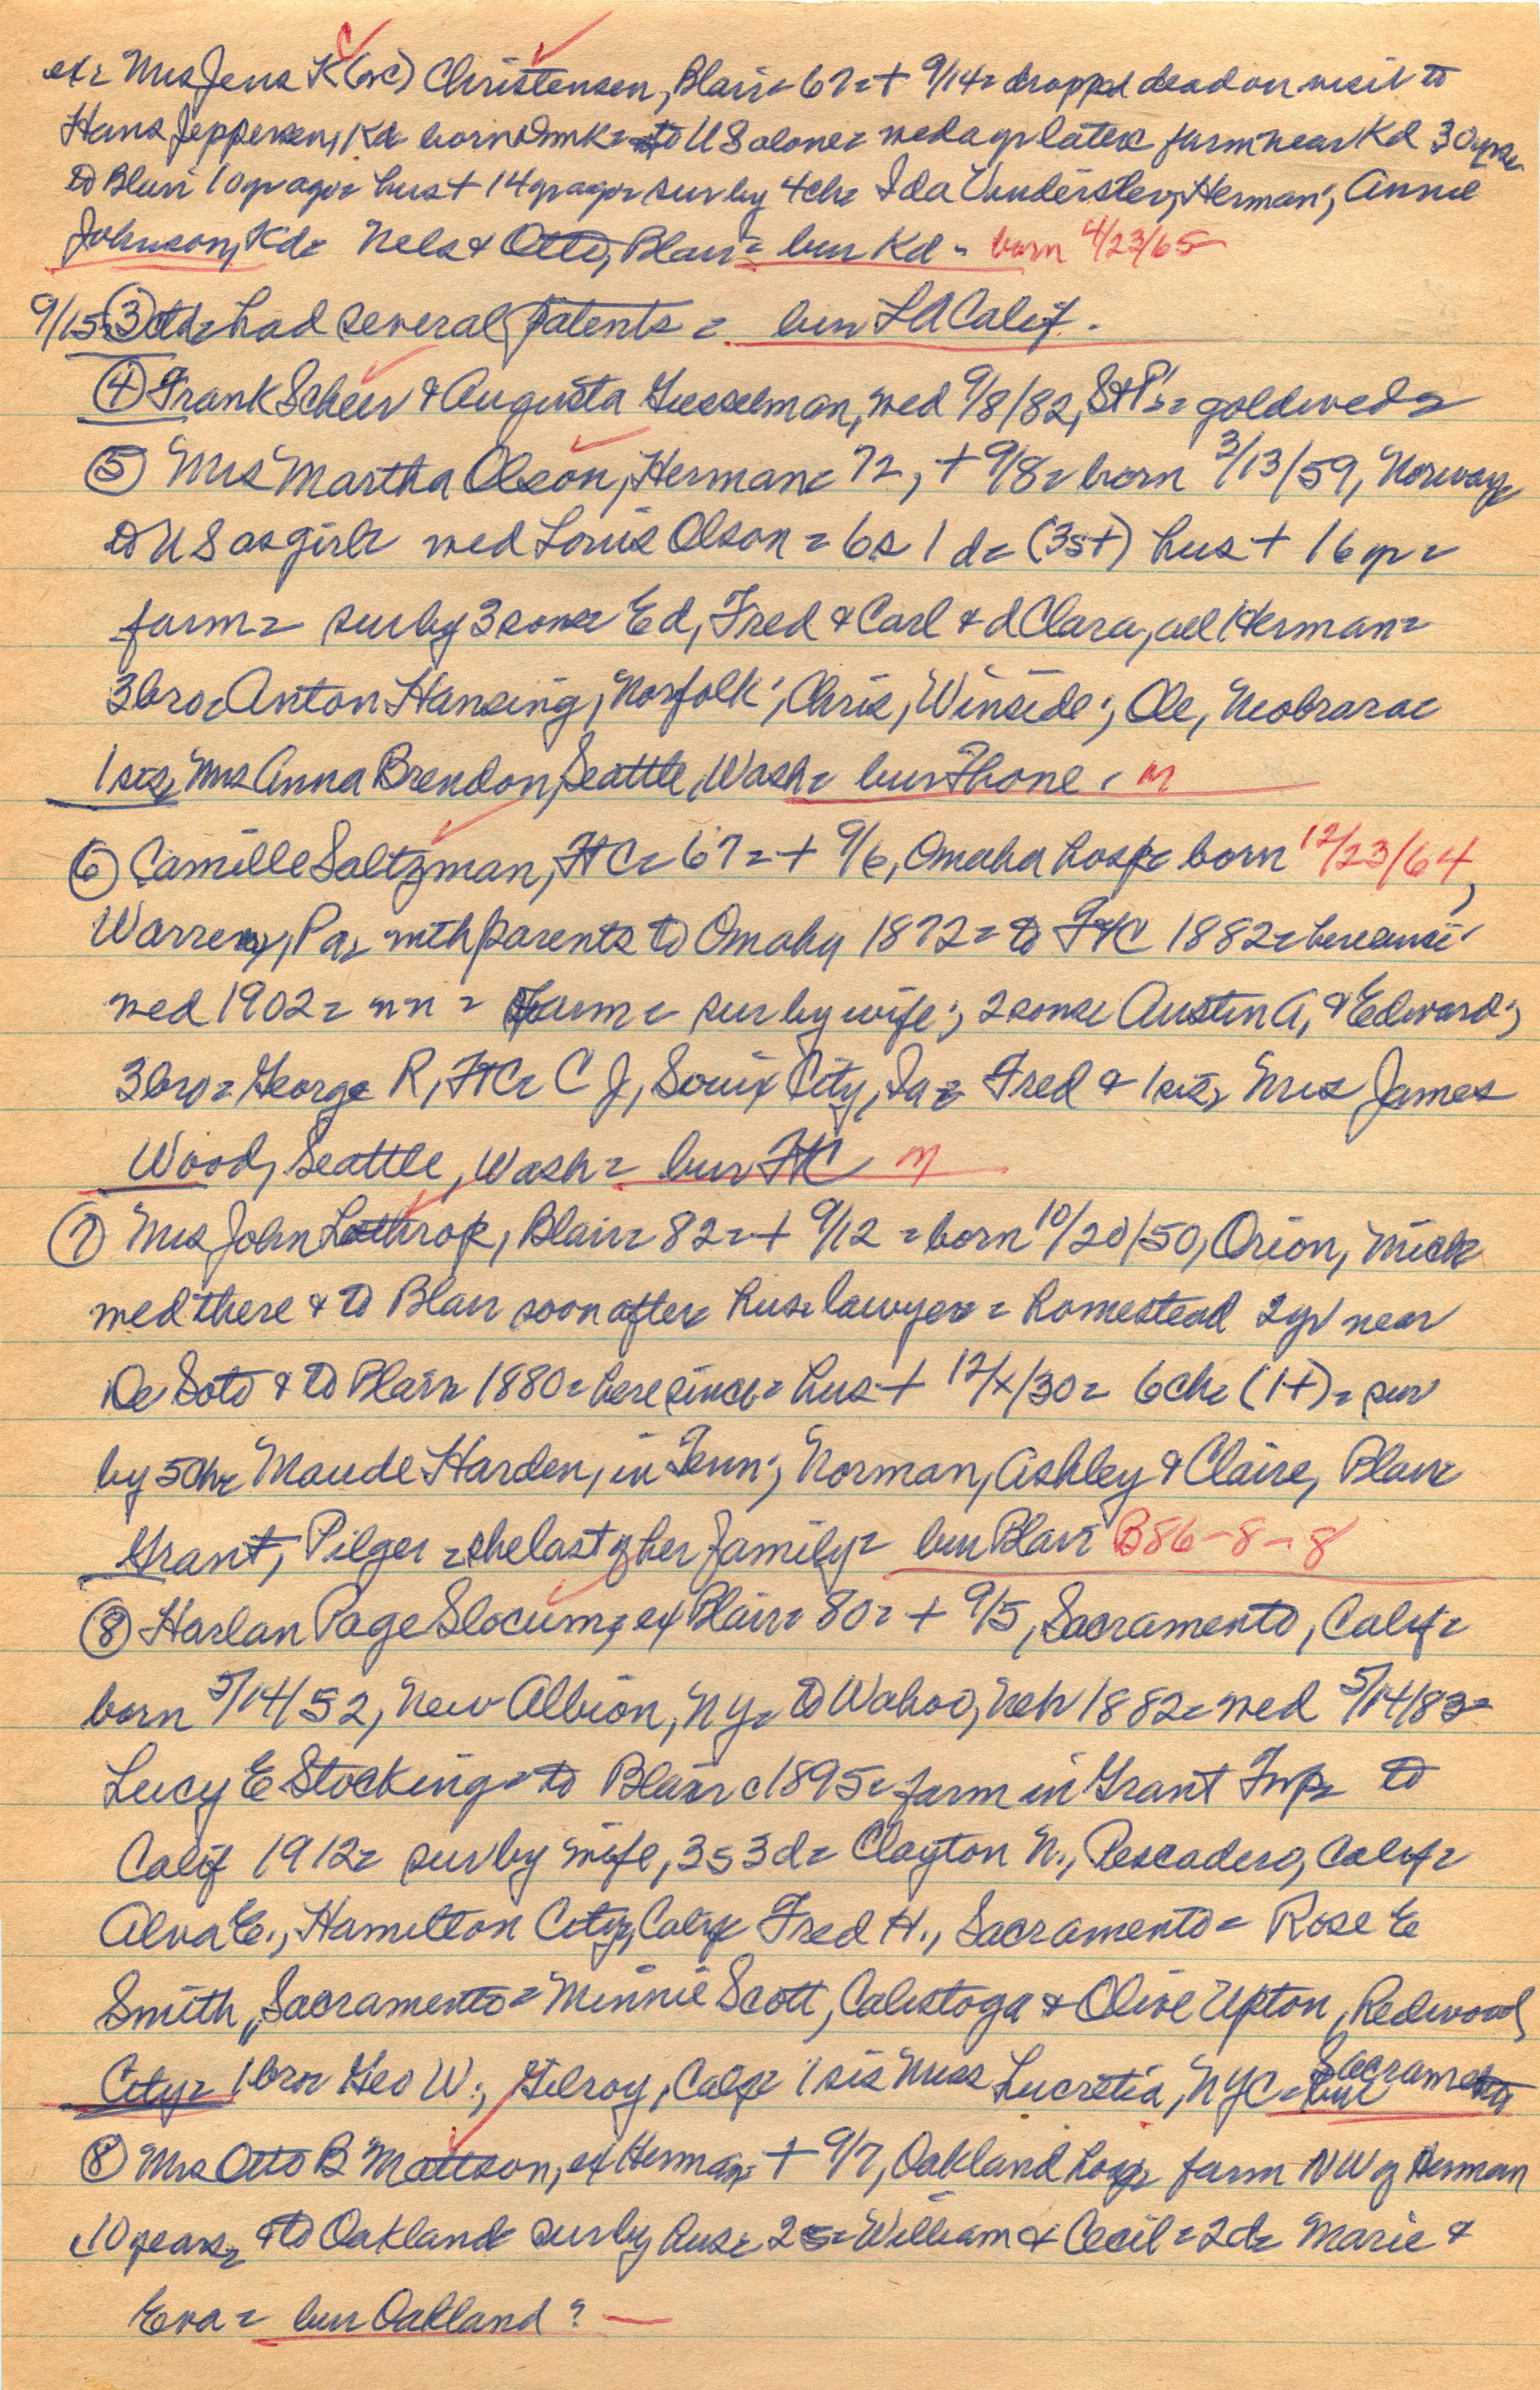 ex= Mrs Jens K (or C) Christensen, Blair= 67=+ 9/14= dropped dead on visit to
Hans Jeppesen, Kd= born Dmk= to US alone= wed a yr later= farm near Kd 30 yrs=
to Blair 10 yr ago= hus + 14 yr ago= sur by 4 ch= Ida Vunderslev, Herman; Annie
Johnson, Kd= Nels & Otto, Blair= bur Kd - born 4/23/65
9/15= ③ ctd= had several patents = bur LA Calif.
④ Frank Scheer & Augusta Giesselman, wed 9/8/82, St P's= gold wed=
⑤ Mrs Martha Olson, Herman= 72, + 9/8= born 3/13/59, Norway
to US as girl= wed Louis Olson = 6s 1 d= (3s+) hus + 16 yr =
farm= sur by 3 sons= Ed, Fred & Carl & d Clara, all Herman=
3 bro= Anton Hansing, Norfolk; Chris, Winside; Ole, Niobrara=
1 sis, Mrs Anna Brendon, Seattle, Wash= bur Fhone. M
⑥ Camille Saltzman, FtC= 67=+ 9/6, Omaha hosp= born 12/23/64,
Warren, Pa, with parents to Omaha 1872= to FtC 1882= here since
wed 1902= nn = Farm= sur by wife; 2 sons= Austin A, & Edward;
3 bro= George R, FtC= C J, Souix City, Ia= Fred & 1 sis, Mrs James
Wood, Seattle, Wash= bur FtC M
⑦ Mrs John Lothrop, Blair= 82=+ 9/12 = born 10/20/50, Orion, Mich=
wed there & to Blair soon after= hus= lawyer= homestead 2 yr near
De Soto & to Blair 1880= here since= hus + 12/x/30= 6 ch= (1+)= sur
by 5 ch= Maude Harden, in Tenn; Norman, Ashley & Claire, Blair=
Grant, Pilger = she last of her family= bur Blair B86-8-8
⑧ Harlan Page Slocum, ex Blair= 80= + 9/5, Sacramento, Calif=
born 5/14/52, New Albion, NY= to Wahoo, Neb 1882= wed 5/14/83=
Lucy E Stocking= to Blair c1895= farm in Grant Twp= to
Calif 1912= sur by wife, 3s 3d= Clayton N., Pescadero, Calif=
Alva E., Hamilton City, Calif= Fred H., Sacramento= Rose E
Smith, Sacramento= Minnie Scott, Calistoga & Olive Upton, Redwood
City= 1 bro= Geo W., Gilroy, Calif= 1 sis Miss Lucretia, NYC= bur Sacramento
⑧ Mrs Otto B Mattson, ex Herman= + 9/7, Oakland hosp= farm NW of Herman
10 years, & to Oakland= sur by hus= 2s= William & Cecil= 2d= Marie &
Eva= bur Oakland ? —